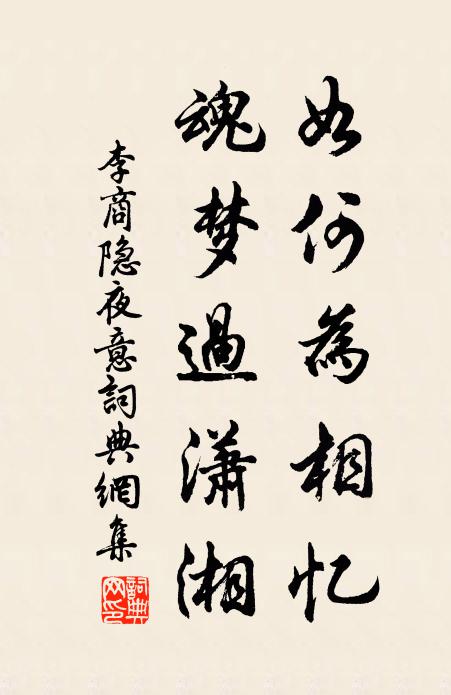 如何为相忆
魂梦過潇湘
李商隐夜意詞典網集
詞典网印